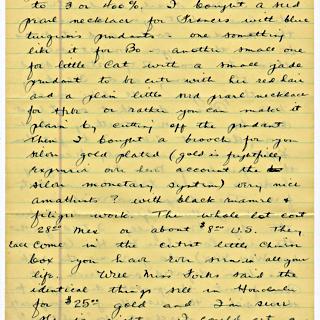 to 3 or 400%. I bought a seed
pearl necklace for Frances with blue
turquois pendants - one something
like it for Bo - another small one
for little Cat with a small jade
pendant to be cute with her red hair
and a plain little seed pearl necklace
for - or rather you can make it
plain by cutting off the pendant.
Then I bought a brooch for you
silver gold plated (gold is frightfully
expensive on account the
silver monetary system) very nice
amathists? with black enamel &
filigre work. The whole lot cost
28.00 Mex or about $8.00 U.S. They
come in the cutest little
box - you have ever seen in all your
life. Well Miss said the
identical things sell in Honolulu
for $25.00 gold and I'm sure